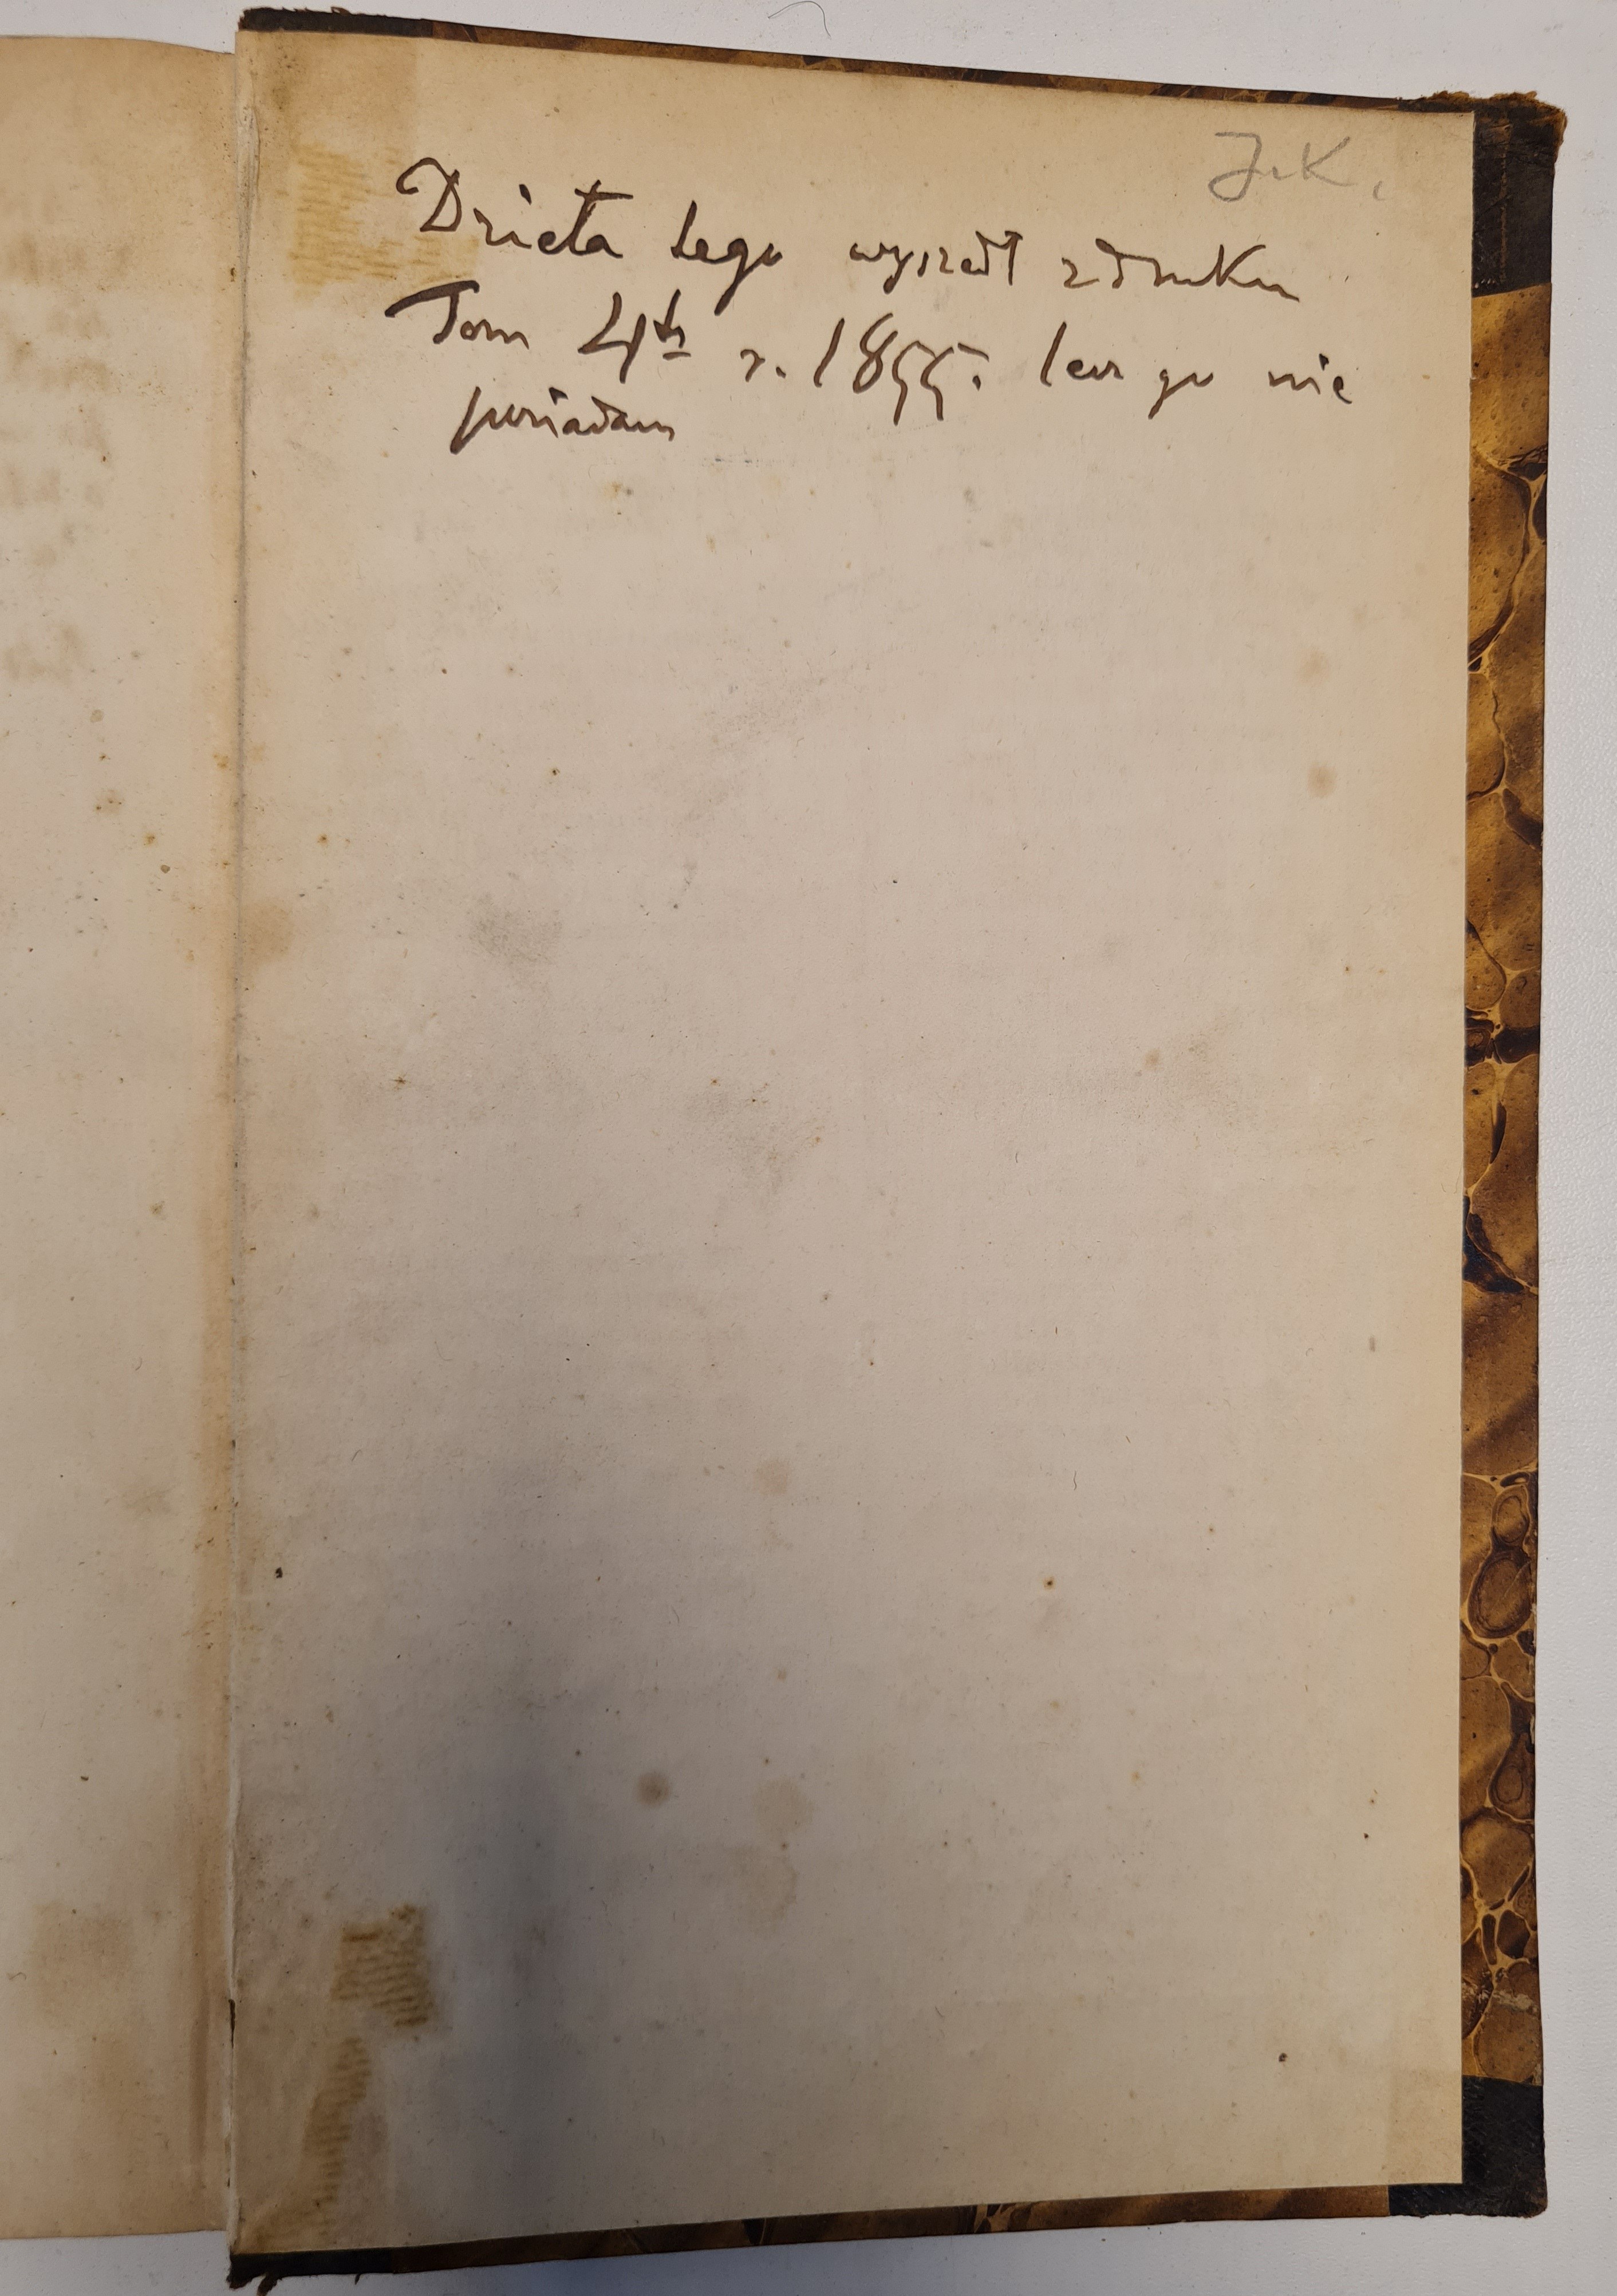 J. K.
Dzieła tego wyszedł z druku
Tom 4ty r. 1855. lecz go nie
posiadam